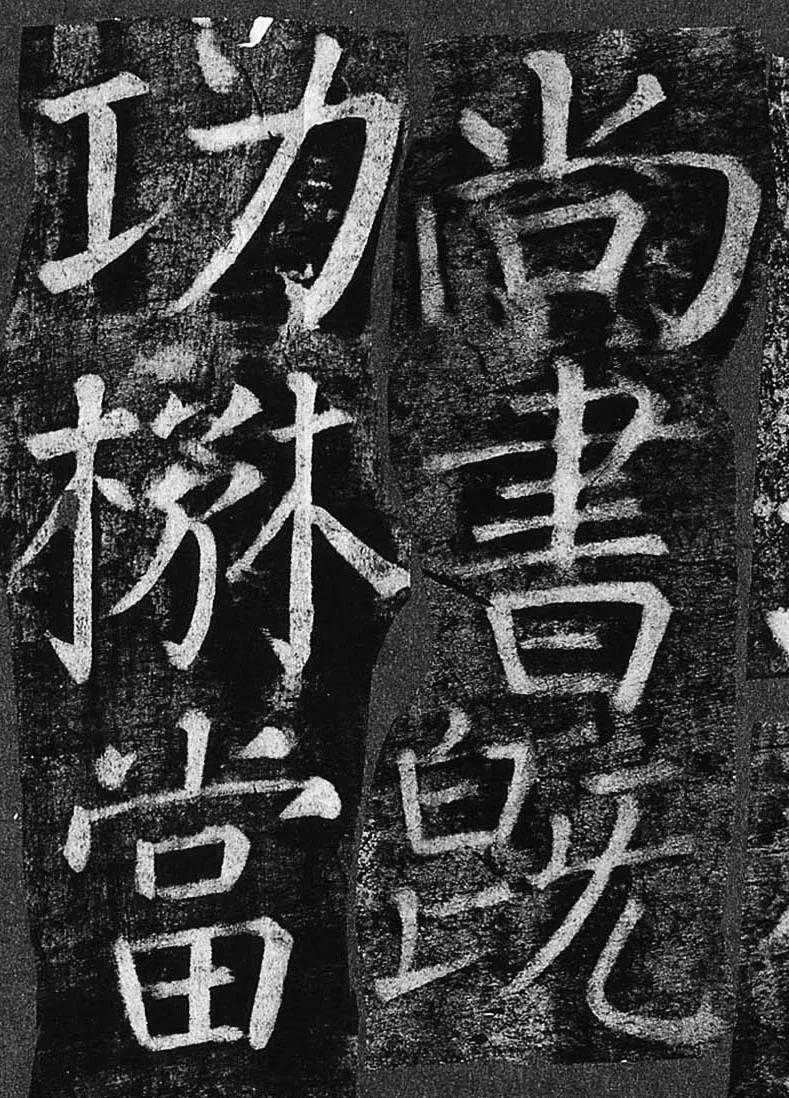 尚書既
功楙當